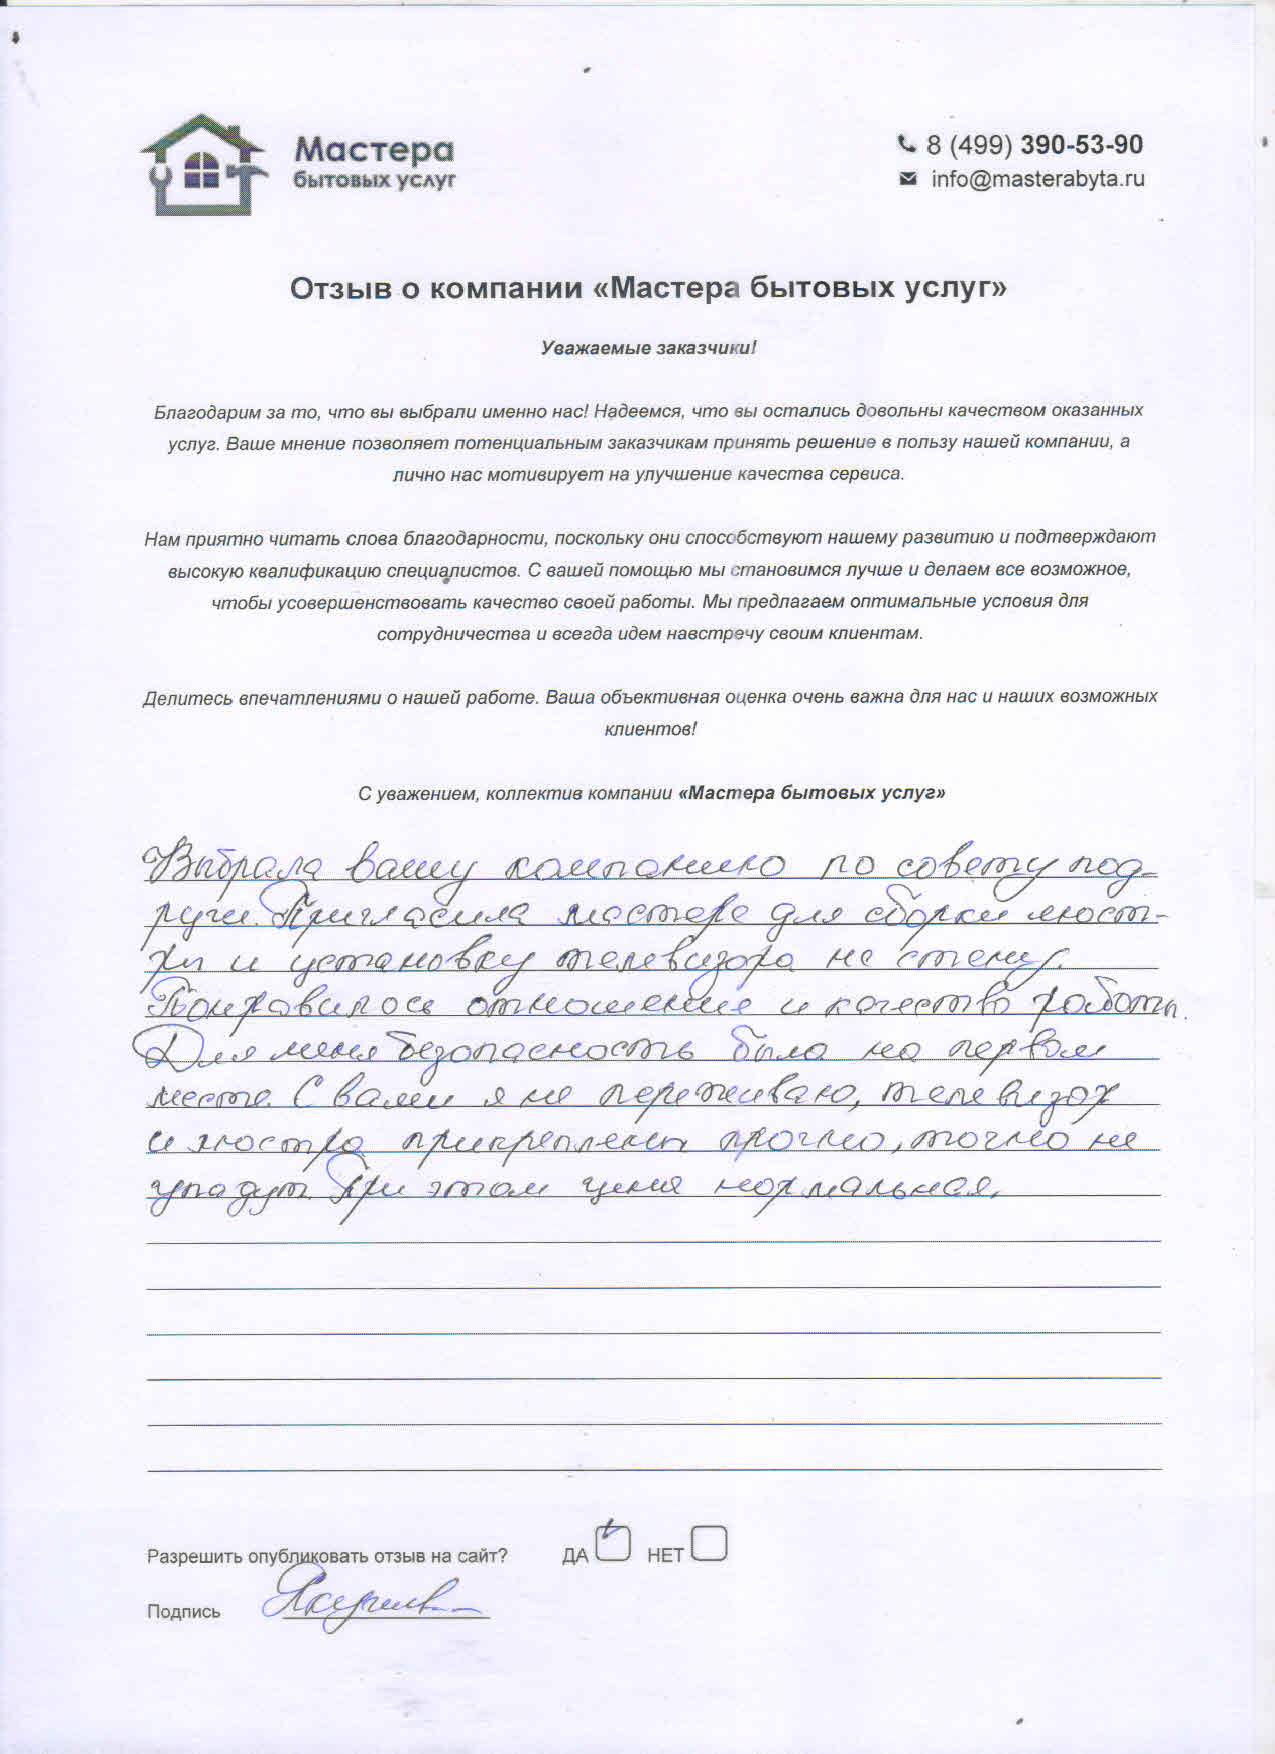 Мастера
бытовых услуг
8 (499) 390-53-90
info@masterabyta.ru
Отзыв о компании «Мастера бытовых услуг»
Уважаемые заказчики!
Благодарим за то, что вы выбрали именно нас! Надеемся, что вы остались довольны качеством оказанных
услуг. Ваше мнение позволяет потенциальным заказчикам принять решение в пользу нашей компании, а
лично нас мотивирует на улучшение качества сервиса.
Нам приятно читать слова благодарности, поскольку они способствуют нашему развитию и подтверждают
высокую квалификацию специалистов. С вашей помощью мы становимся лучше и делаем все возможное,
чтобы усовершенствовать качество своей работы. Мы предлагаем оптимальные условия для
сотрудничества и всегда идем навстречу своим клиентам.
Делитесь впечатлениями о нашей работе. Ваша объективная оценка очень важна для нас и наших возможных
клиентов!
С уважением, коллектив компании «Мастера бытовых услуг»
Выбрала вашу компанию по совету под-
руги. Пригласила мастера для сборки люст-
ры и установку телевизора на стену.
Понравилось отношение и качество работы.
Для меня безопасность была на первом
месте. С вами я не переживаю, телевизор
и люстра прикреплены прочно, точно не
упадут. При этом цена нормальная.
Разрешить опубликовать отзыв на сайт? ДА НЕТ
Подпись